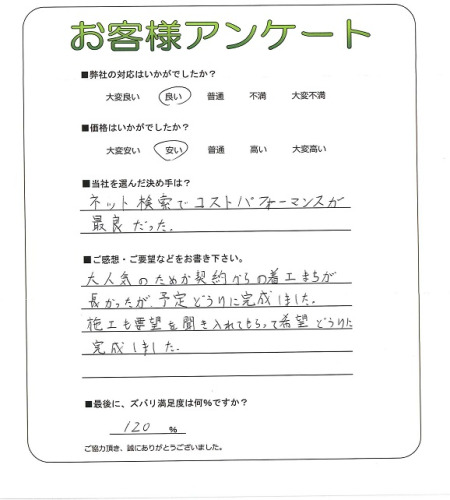 お客様アンケート
■弊社の対応はいかがでしたか?
大変良い 良い 普通 不満 大変不満
■価格はいかがでしたか?
大変安い 安い 普通 高い 大変高い
■当社を選んだ決め手は?
ネット検索でコストパフォーマンスが
最良だった.
■ご感想・ご要望などをお書き下さい。
大人気のためか契約からの着工まちが
長かったが予定どうりに完成しました。
施工も要望を聞き入れてもらって希望どうりに
完成しました.
■最後に、ズバリ満足度は何%ですか?
120 %
ご協力頂き、誠にありがとうございました。